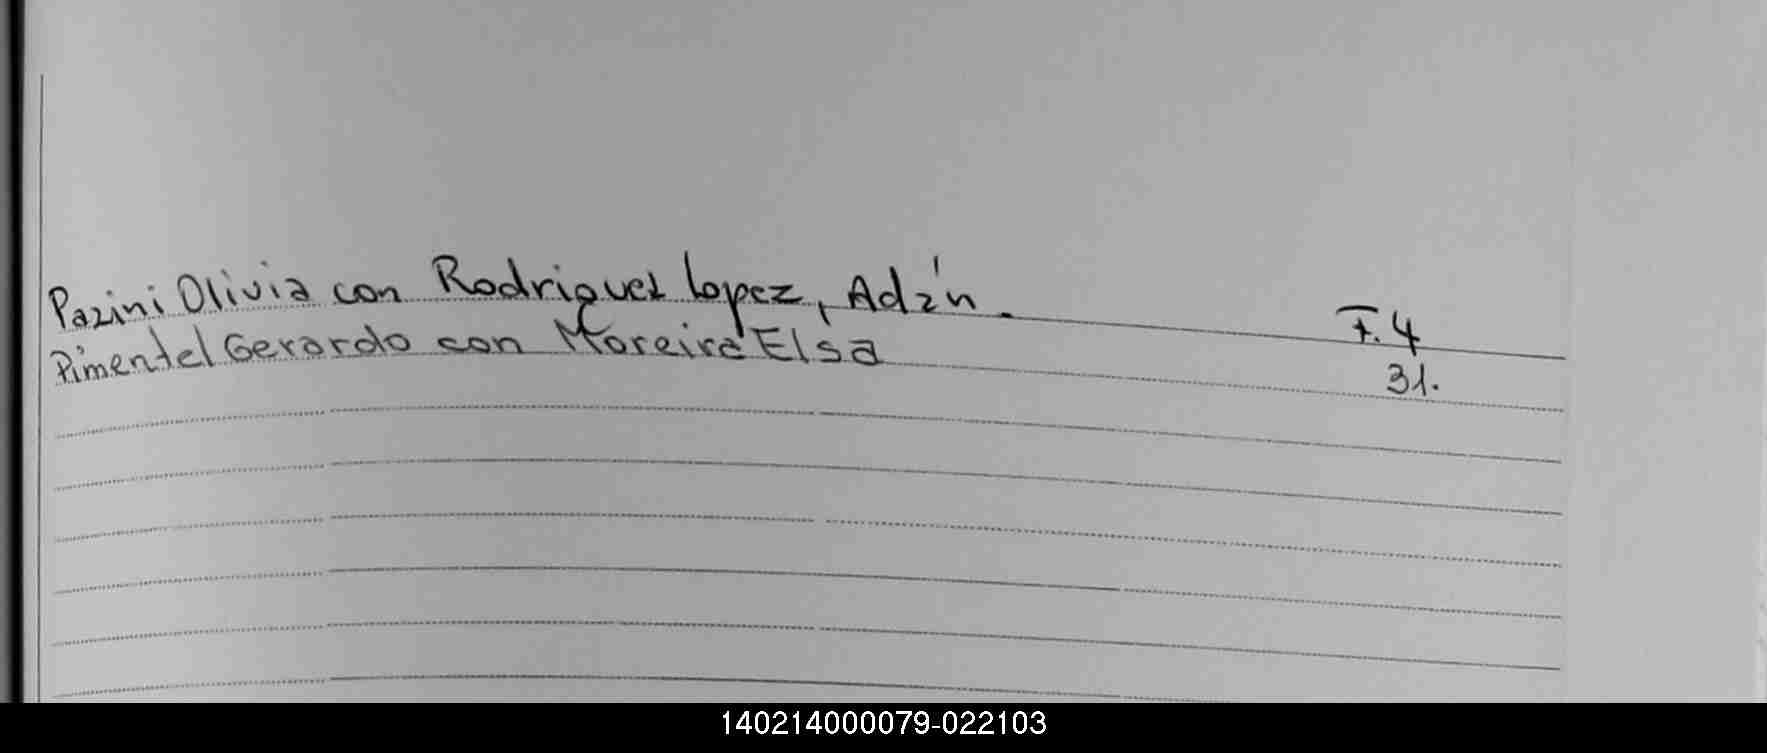 Pazini Olivia con Rodriguez Lopez, Adán. F. 4
Pimentel Gerardo con Moreira Elsa 31.
140214000079-022103